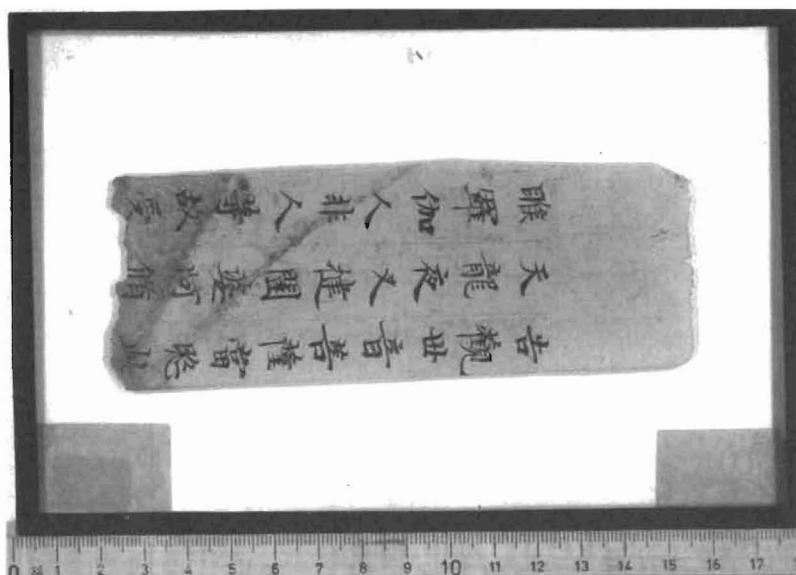 告觀世音菩薩當愍此
天龍夜叉揵闥婆阿脩
睺羅伽人非人等故受
0 1 2 3 4 5 6 7 8 9 10 11 12 13 14 15 16 17